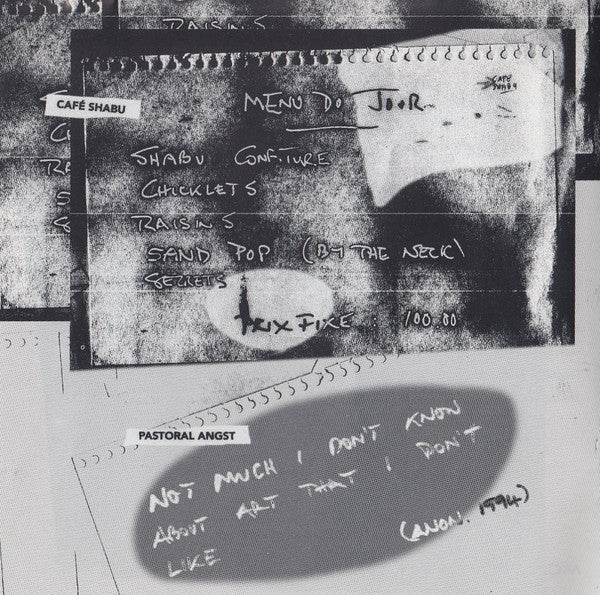 RAISINS
CAFÉ SHABU
MENU DO JOOR
CAFÉ
SHABU
SHABU CONFITURE
CHICKLETS
RAISINS
SAND POP (BY THE NECK)
SECRETS
PRIX FIXE 100.00
PASTORAL ANGST
NOT MUCH I DON'T KNOW
ABOUT ART THAT I DON'T
LIKE
(ANON. 1994)